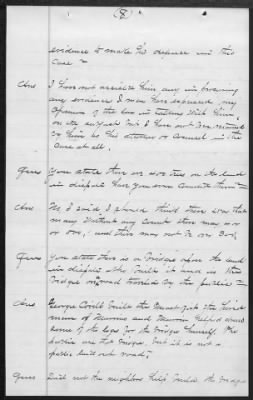 (8)
evidence to make the defense in this
case –
Ans I have not assisted him any in procuring
any evidence I may have expressed my
opinion of the law in talking with him,
on the subject but I have not been retained
by him as his attorney or counsel in the
case at all.
Ques You state there are trees on the land
in dispute have you ever counted them –
Ans No I said I should think there was that
many without any count there may
or
and there may not be over 300
Ques You state there is a bridge upon the land
in dispute who built it and is this
bridge or road traveled by the public –
Ans George Covill built the
men of and helped
some of the logs for the bridge himself. The
public use that bridge but it is not a
public laid out road.
Ques Did not the neighbors help build the bridge